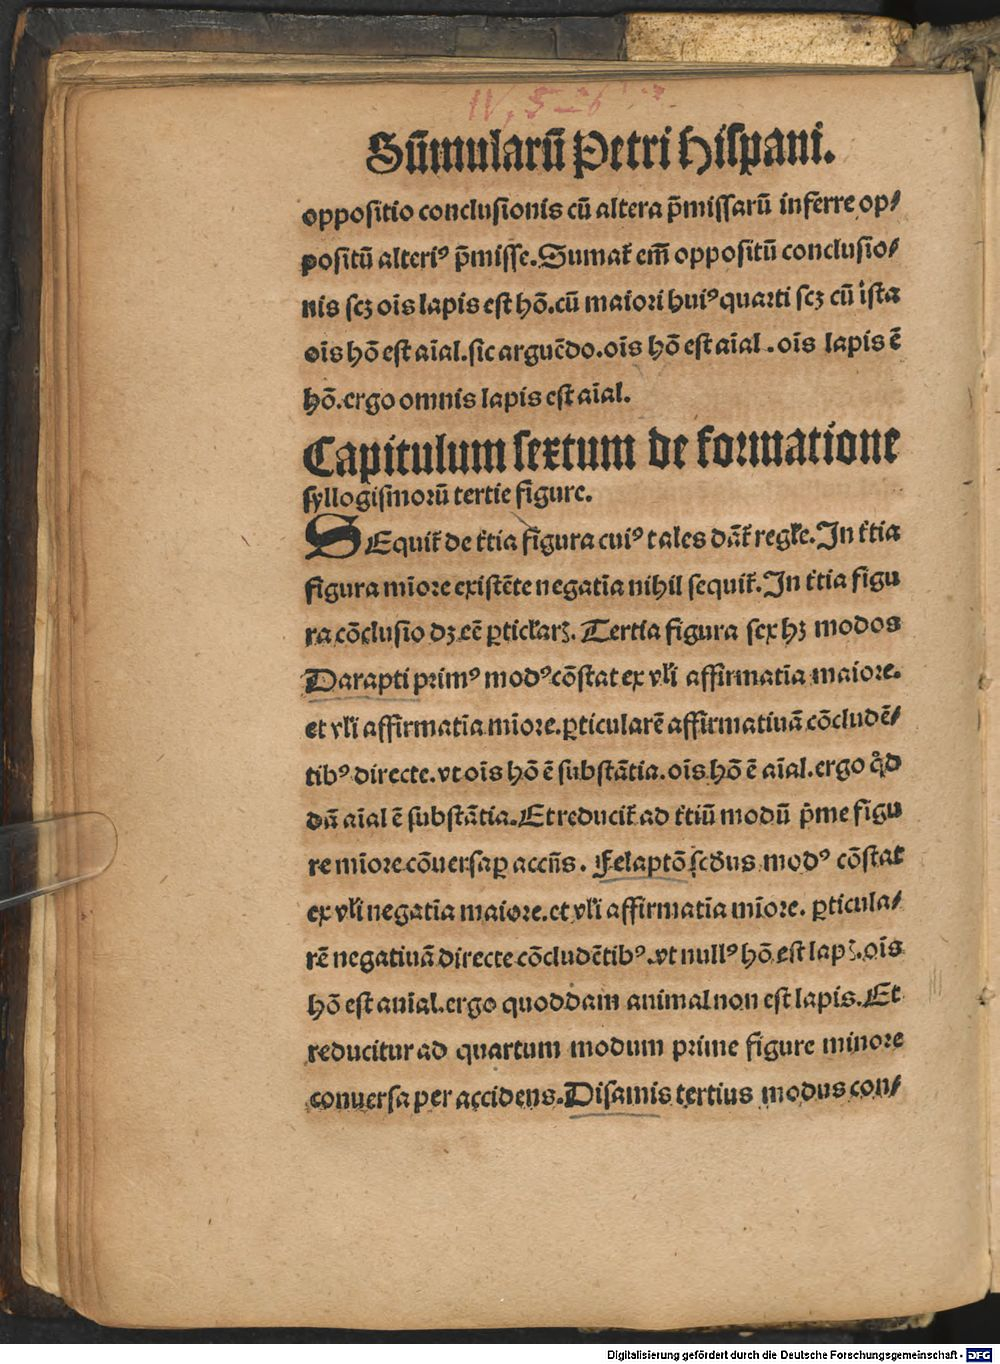 IV, 5–6
Sūmularū Petri Hispani.
oppositio conclusionis cū altera p̄missarū inferre op⸗
positū alteriꝰ p̄misse. Sumat᷑ em̄ oppositū conclusio⸗
nis scꝫ oīs lapis est hō. cū maiori huiꝰ quarti scꝫ cū ista
oīs hō est aīal. sic arguēdo. oīs hō est aīal. oīs lapis ē
hō. ergo omnis lapis est aīal.
Capitulum sextum de formatione
syllogismorū tertie figure.
SEquit᷑ de t̓tia figura cuiꝰ tales dāt᷑ regl̓e. In t̓tia
figura mīore existēte negatīa nihil sequit᷑. In t̓tia figu
ra cōclusio dꝫ eē ꝑticl̓arꝫ. Tertia figura sex hꝫ modos
Darapti primꝰ modꝰ cōstat ex vl̓i affirmatīa maiore.
et vl̓i affirmatīa mīore. ꝑticularē affirmatiuā cōcludē⸗
tibꝰ directe. vt oīs hō ē substātia. oīs hō ē aīal. ergo qͦd
dā aīal ē substātia. Et reducit᷑ ad t̓tiū modū p̓me figu
re mīore cōuersa ꝑ accn̄s. Felaptō scd̓us modꝰ cōstat
ex vl̓i negatīa maiore. et vl̓i affirmatīa mīore. ꝑticula⸗
rē negatiuā directe cōcludētibꝰ. vt nullꝰ hō est lapꝫ. oīs
hō est anīal. ergo quoddam animal non est lapis. Et
reducitur ad quartum modum prime figure minore
conuersa per accidens. Disamis tertius modus con⸗
Digitalisierung gefördert durch die Deutsche Forschungsgemeinschaft - DFG